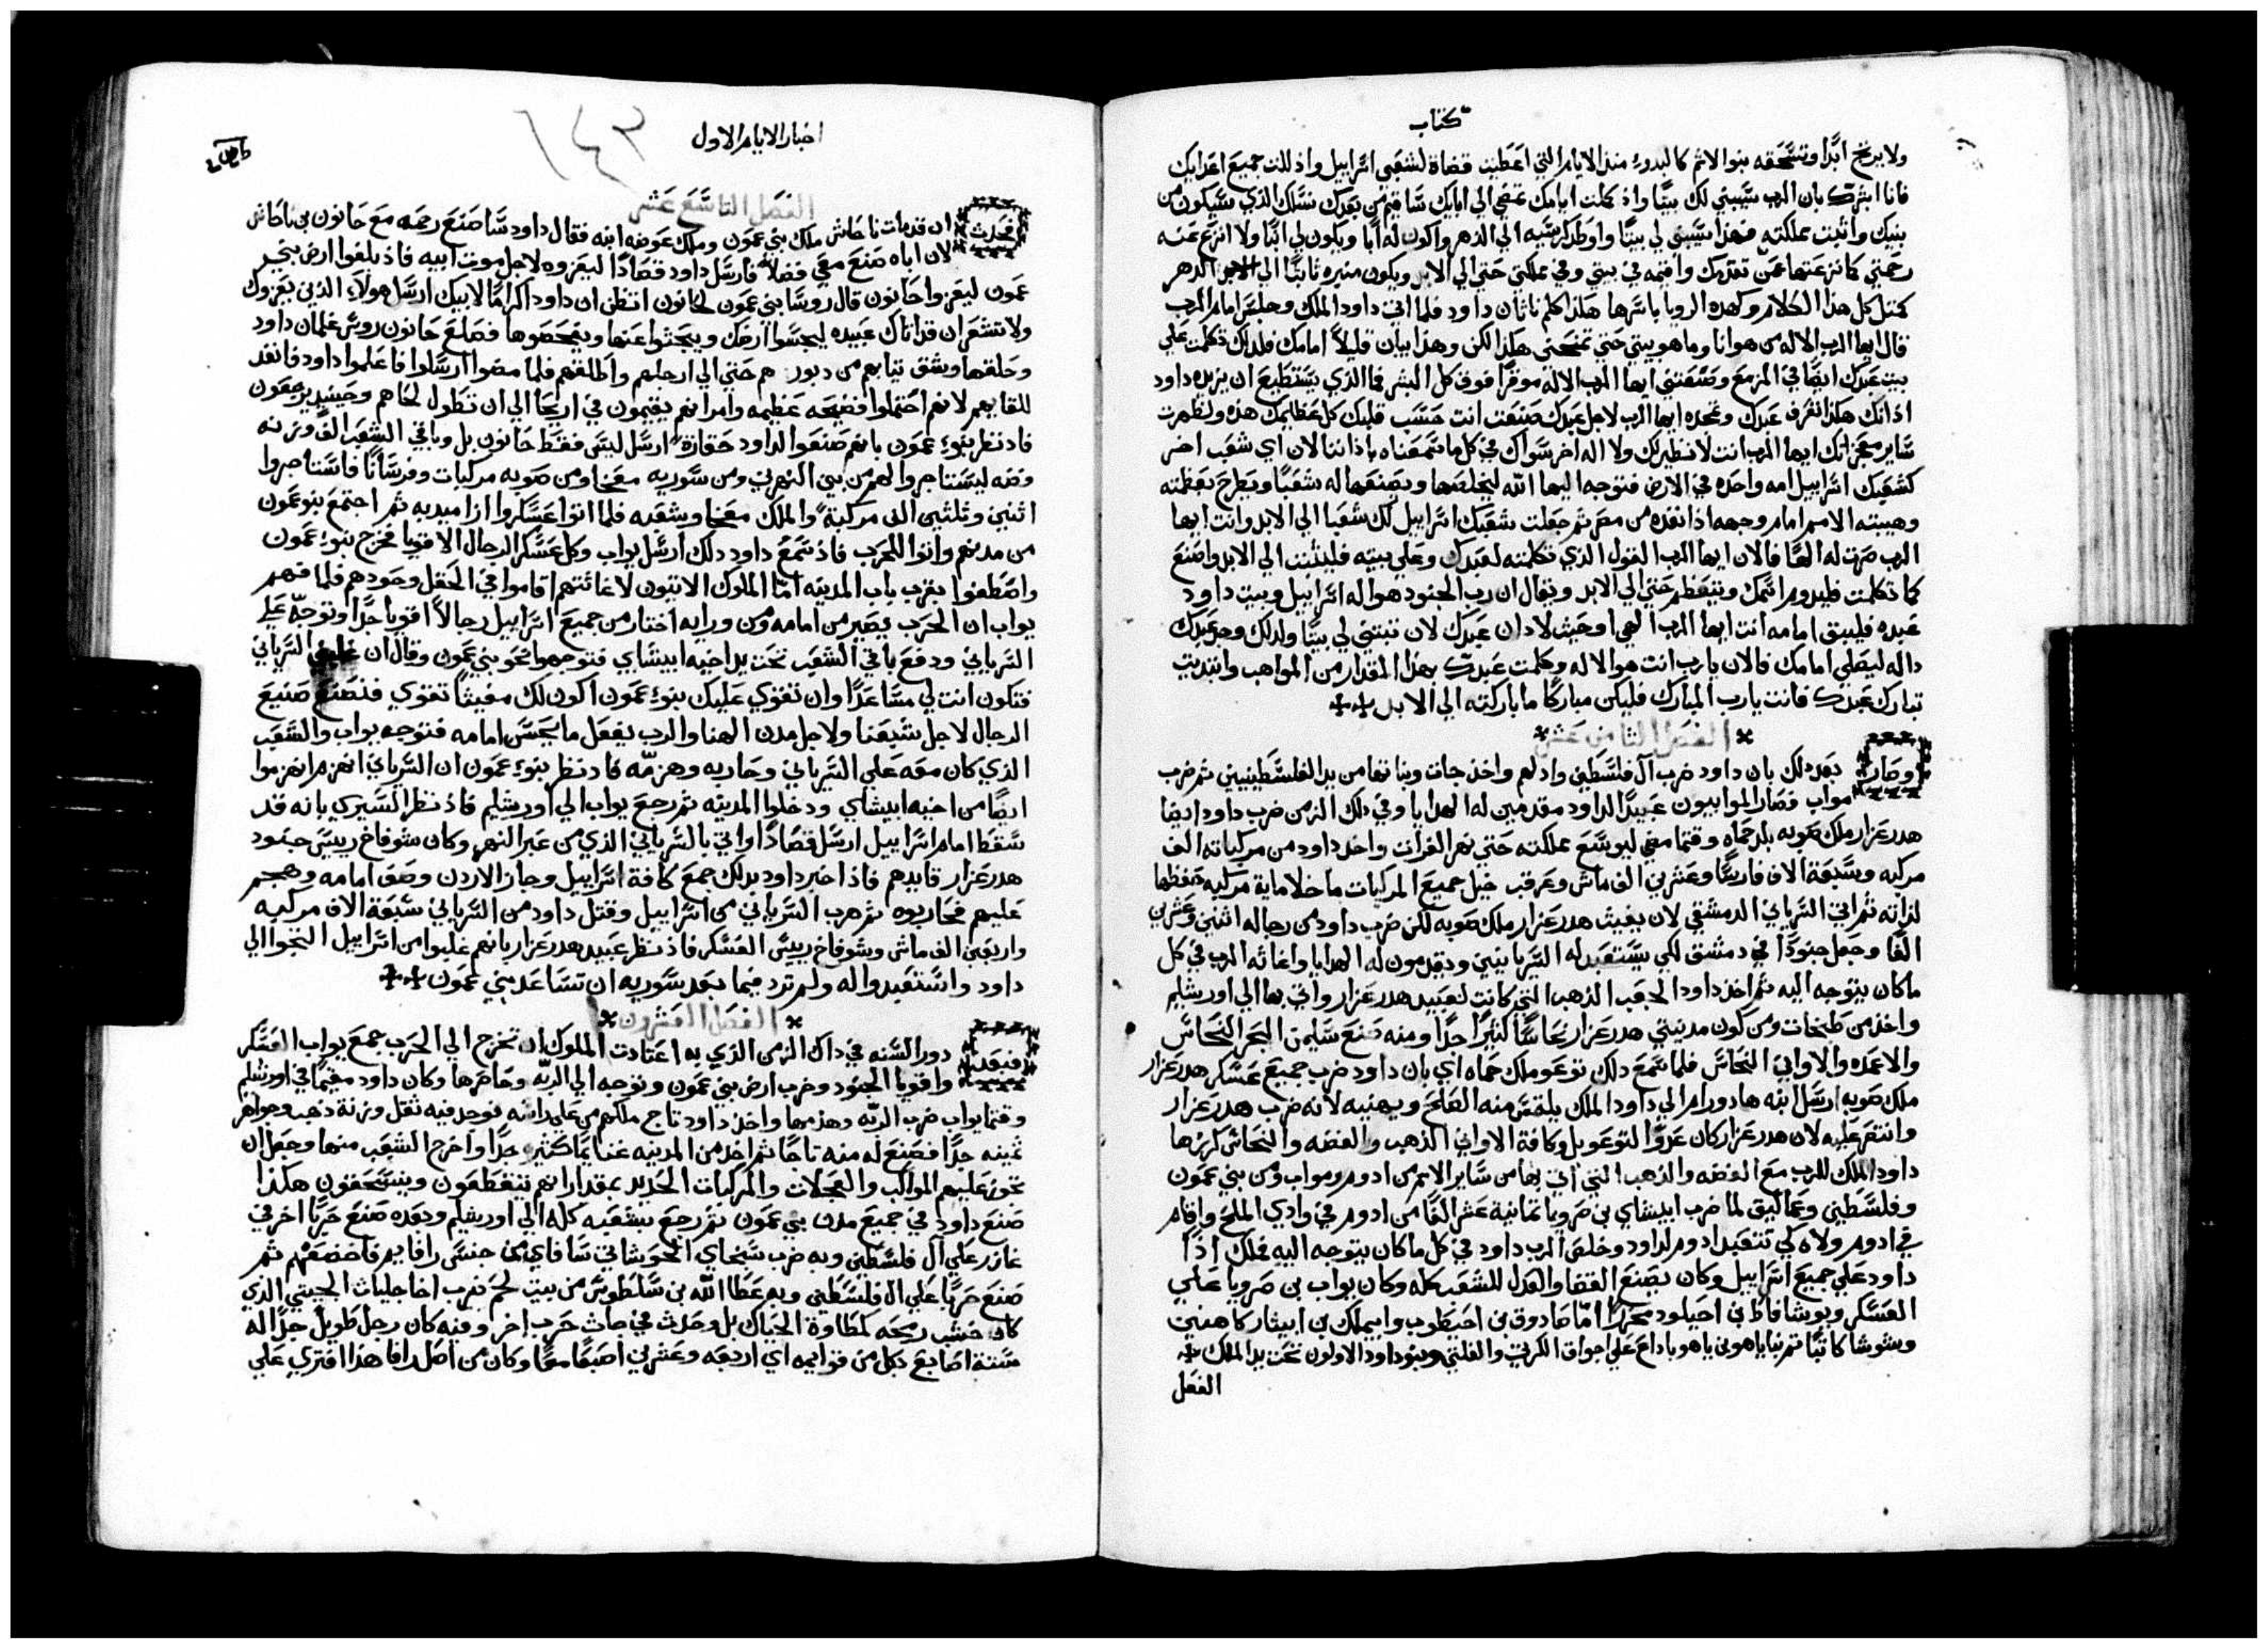 كتاب
ولا يرنج ابدًا وتسحقه بنوا الاثم كالبدوء منذ الايام التي اعطيت قضاة لشعبي اسراييل واذللت جميع اعدايك
فانا ابشرك بان الرب سيبني لك بيتًا واذ كملت ايامك تمضي الي ابايك ساقيم من بعدك نسلك الذي سيكون من
بنيك واثبت مملكته فهذا سيبني لي بيتًا واوطد كرسيه الي الدهر واكون له ابًا ويكون لي ابنًا ولا انزع عنه
رحمتي كما نزعتها عمن تقدمك واقيمه في بيتي وفي مملكتي حتي الي الابد ويكون منبره ثابتًا الي الدهر
كمثل كل هذا الكلام وكهذه الرويا باسرها هكذا كلم ناثان داود فلما اتي داود الملك وجلس امام الرب
قال ايها الرب الاله من هو انا وما هو بيتي حتي تمنحني هكذا لكن وهذا بيان قليلاً امامك فلذلك تكلمت علي
بيت عبدك ايضًا في المزمع وصنعتني ايها الرب الاله موقرًا فوق كل البشر فما الذي يستطيع ان يزيده داود
اذ انك هكذا تعرف عبدك وتمجده ايها الرب لاجل عبدك صنعت انت حسب قلبك كل عظايمك هذه وتظهرت
ساير معجزاتك ايها الرب انت لا نظير لك ولا اله اخر سواك في كل ما سمعناه باذاننا لان اي شعب اخر
كشعبك اسراييل امه واحده في الارض فتوجه اليها الله ليخلصها ويصنعها له شعبًا ويطرح بعظمته
وهيبته الامم امام وجهه اذ انقذه من مصر ثم جعلت شعبك اسراييل لك شعبا الي الابد وانت ايها
الرب صرت له الهًا فالان ايها الرب القول الذي تكلمته لعبدك وعلي بيته فليثبت الي الابد واصنع
كما تكلمت فليدوم اسمك ويتعظم حتي الي الابد ويقال ان رب الجنود هو اله اسراييل وبيت داود
عبده فليبق امامه انت ايها الرب الهي اوحيت لاذان عبدك لان تبتني لي بيتًا ولذلك وجد عبدك
داله ليصلي امامك فالان يا رب انت هو الاله وكلمت عبدك بهذا المقدار من المواهب وابتديت
تبارك عبدك فانت يا رب المبارك فليكن مباركًا ما باركته الي الابد
الفصل الثامن عشر
وصار بعد ذلك بان داود ضرب آل فلسطين واذلهم واخذ جات وبناتها من يد الفلسطينيين ثم ضرب
مواب فصار الموابيون عبيدًا لداود مقدمين له الهدايا وفي ذلك الزمن ضرب داود ايضا
هدرعزار ملك صوبه بلد حماه وقتما مضي ليوسع مملكته حتي نهر الفرات واخذ داود من مركباته الف
مركبه وسبعة الاف فارسًا وعشرين الف ماش وعرقب خيل جميع المركبات ما خلا ماية مركبه حفظها
لذاته ثم اتي السرياني الدمشقي لان يغيث هدرعزار ملك صوبه لكن ضرب داود من رجاله اثنين وعشرين
الفًا وجعل جنودًا في دمشق لكي يستعبد له السريانيين ويقدمون له الهدايا واغاثه الرب في كل
ما كان يتوجه اليه ثم اخذ داود الجعب الذهب التي كانت لعبيد هدرعزار واتي بها الي اورشليم
واخذ من طبخات ومن كون مدينتي هدرعزار نحاسًا كثيرًا جدًا ومنه صنع سليمن البحر النحاس
والاعمده والاواني النحاس فلما سمع ذلك توعو ملك حماه اي بان داود ضرب جميع عسكر هدرعزار
ملك صوبه ارسل ابنه هادورام الي داود الملك يلتمس منه الصلح ويهنيه لانه ضرب هدرعزار
وانتصر عليه لان هدرعزار كان عدوًا لتوعو بل وكافة الاواني الذهب والفضه والنحاس كرزها
داود الملك للرب مع الفضه والذهب التي اتي بها من ساير الامم من ادوم ومواب ومن بني عمون
وفلسطين وعماليق لما ضرب ابيشاي بن صرويا ثمانية عشر الفًا من ادوم في وادي الملح واقام
في ادوم ولاه كي تتعبد ادوم لداود وخلص الرب داود في كل ما كان يتوجه اليه فملك اذًا
داود علي جميع اسراييل وكان يصنع القضا والعدل للشعب كله وكان يواب بن صرويا علي
العسكر ويوشافاط بن احيلود محررًا امّا صادوق بن احيطوب وابيملك بن ابيثار كاهنين
وشوشا كاتبًا ثم بنايا هو بن ياهوياداع علي اجواق الكريتي والفلتي وبنو داود الاولون تحت يد الملك
الفصل
اخبار الايام الاول
١٤٣
الفصل التاسع عشر
فحدث ان قد مات ناحاش ملك بني عمون وملك عوضه ابنه فقال داود ساصنع رحمه مع حانون بن ناحاش
لان اباه صنع معي فضلاً فارسل داود قصادًا ليعزوه لاجل موت ابيه فاذ بلغوا ارض بني
عمون ليعزوا حانون قال روسا بني عمون لحانون اتظن ان داود اكرامًا لابيك ارسل هولاء الذين يعزوك
ولا تشعر ان قد اتاك عبيده ليجسوا ارضك ويبحثوا عنها ويفحصوها فصلع حانون روس غلمان داود
وحلقها وشق ثيابهم من دبورهم حتي الي ارجلهم واطلقهم فلما مضوا ارسلوا فاعلموا داود فانفذ
للقايهم لانهم احتملوا فضيحه عظيمه وامر انهم يقيمون في اريحا الي ان تطول لحاهم وحينيذ يرجعون
فاذ نظر بنوء عمون بانهم صنعوا لداود حقارة ارسل ليس فقط حانون بل وباقي الشعب الف وزنه
فضه ليستاجروا لهم من بين النهرين ومن سوريه معخا ومن صوبه مركبات وفرسانًا فاستاجروا
اثنين وثلثين الف مركبة والملك معخا وشعبه فلما اتوا عسكروا ازا ميدبه ثم اجتمع بنو عمون
من مدنهم واتوا للحرب فاذ سمع داود ذلك ارسل يواب وكل عسكر الرجال الاقويا فخرج بنوء عمون
واصطفوا بقرب باب المدينه امّا الملوك الاتيون لاغاثتهم اقاموا في الحقل وحدهم فلما فهم
يواب ان الحرب يصير من امامه ومن ورايه اختار من جميع اسراييل رجالاً اقويا جدًا وتوجّه علي
السرياني ودفع باقي الشعب تحت يد اخيه ابيشاي فتوجهوا نحو بني عمون وقال ان غلبني السرياني
فتكون انت لي مساعدًا وان تقوي عليك بنوء عمون اكون لك مغيثًا تقوي فنصنع صنيع
الرجال لاجل شعبنا ولاجل مدن الهنا والرب يفعل ما يحسن امامه فتوجه يواب والشعب
الذي كان معه علي السرياني وحاربه وهزمّه فاذ نظر بنوء عمون ان السرياني انهزم انهزموا
ايضًا من اخيه ابيشاي ودخلوا المدينه ثم رجع يواب الي اورشليم فاذ نظر السيري بانه قد
سقط امام اسراييل ارسل قصادًا واتي بالسرياني الذي من عبر النهر وكان شوفاخ رييس جنود
هدرعزار قايدهم فاذ اخبر داود بذلك جمع كافة اسراييل وجاز الاردن وصف امامه وهجم
عليهم فحاربوه ثم هرب السرياني من اسراييل وقتل داود من السرياني سبعة الاف مركبه
واربعين الف ماش وشوفاخ رييس العسكر فاذ نظر عبيد هدرعزار بانهم غلبوا من اسراييل التجوا الي
داود واستعبدوا له ولم ترد فيما بعد سوريه ان تساعد بني عمون
الفصل العشرون
فبعد دور السنه في ذاك الزمن الذي به اعتادت الملوك ان تخرج الي الحرب جمع يواب العسكر
واقويا الجنود وخرب ارض بني عمون وتوجه الي الربّه وحاصرها وكان داود مقيمًا في اورشليم
وقتما يواب ضرب الربّه وهدمها واخذ داود تاج ملكهم من علي راسه فوجد فيه ثقل وزنة ذهب وجواهر
ثمينه جدًا فصنع له منه تاجًا ثم اخذ من المدينه غنايمًا كثيره جدًا واخرج الشعب منها وجعل ان
تجوز عليهم الموالب والعجلات والمركبات الحديد بمقدار انهم تتقطعون وينسحقون هكذا
صنع داود في جميع مدن بني عمون ثم رجع بشعبه كله الي اورشليم وبعده صنع حربًا اخر في
غازر علي آل فلسطين وبه ضرب سبخاي الحوشاتي سافاي من جنس رافاييم فاخضعهم ثم
صنع حربًا علي آل فلسطين وبه عطا الله بن سلطوس من بيت لحم ضرب اخا جليات الجيتي الذي
كان خشب رمحه كمطاوة الحياك بل وحدث في جاث حرب اخر وفيه كان رجل طويل جدًا له
ستة اصابع بكل من قوايمه اي اربعه وعشرين اصبعًا معًا وكان من اصل رافا هذا افتري علي